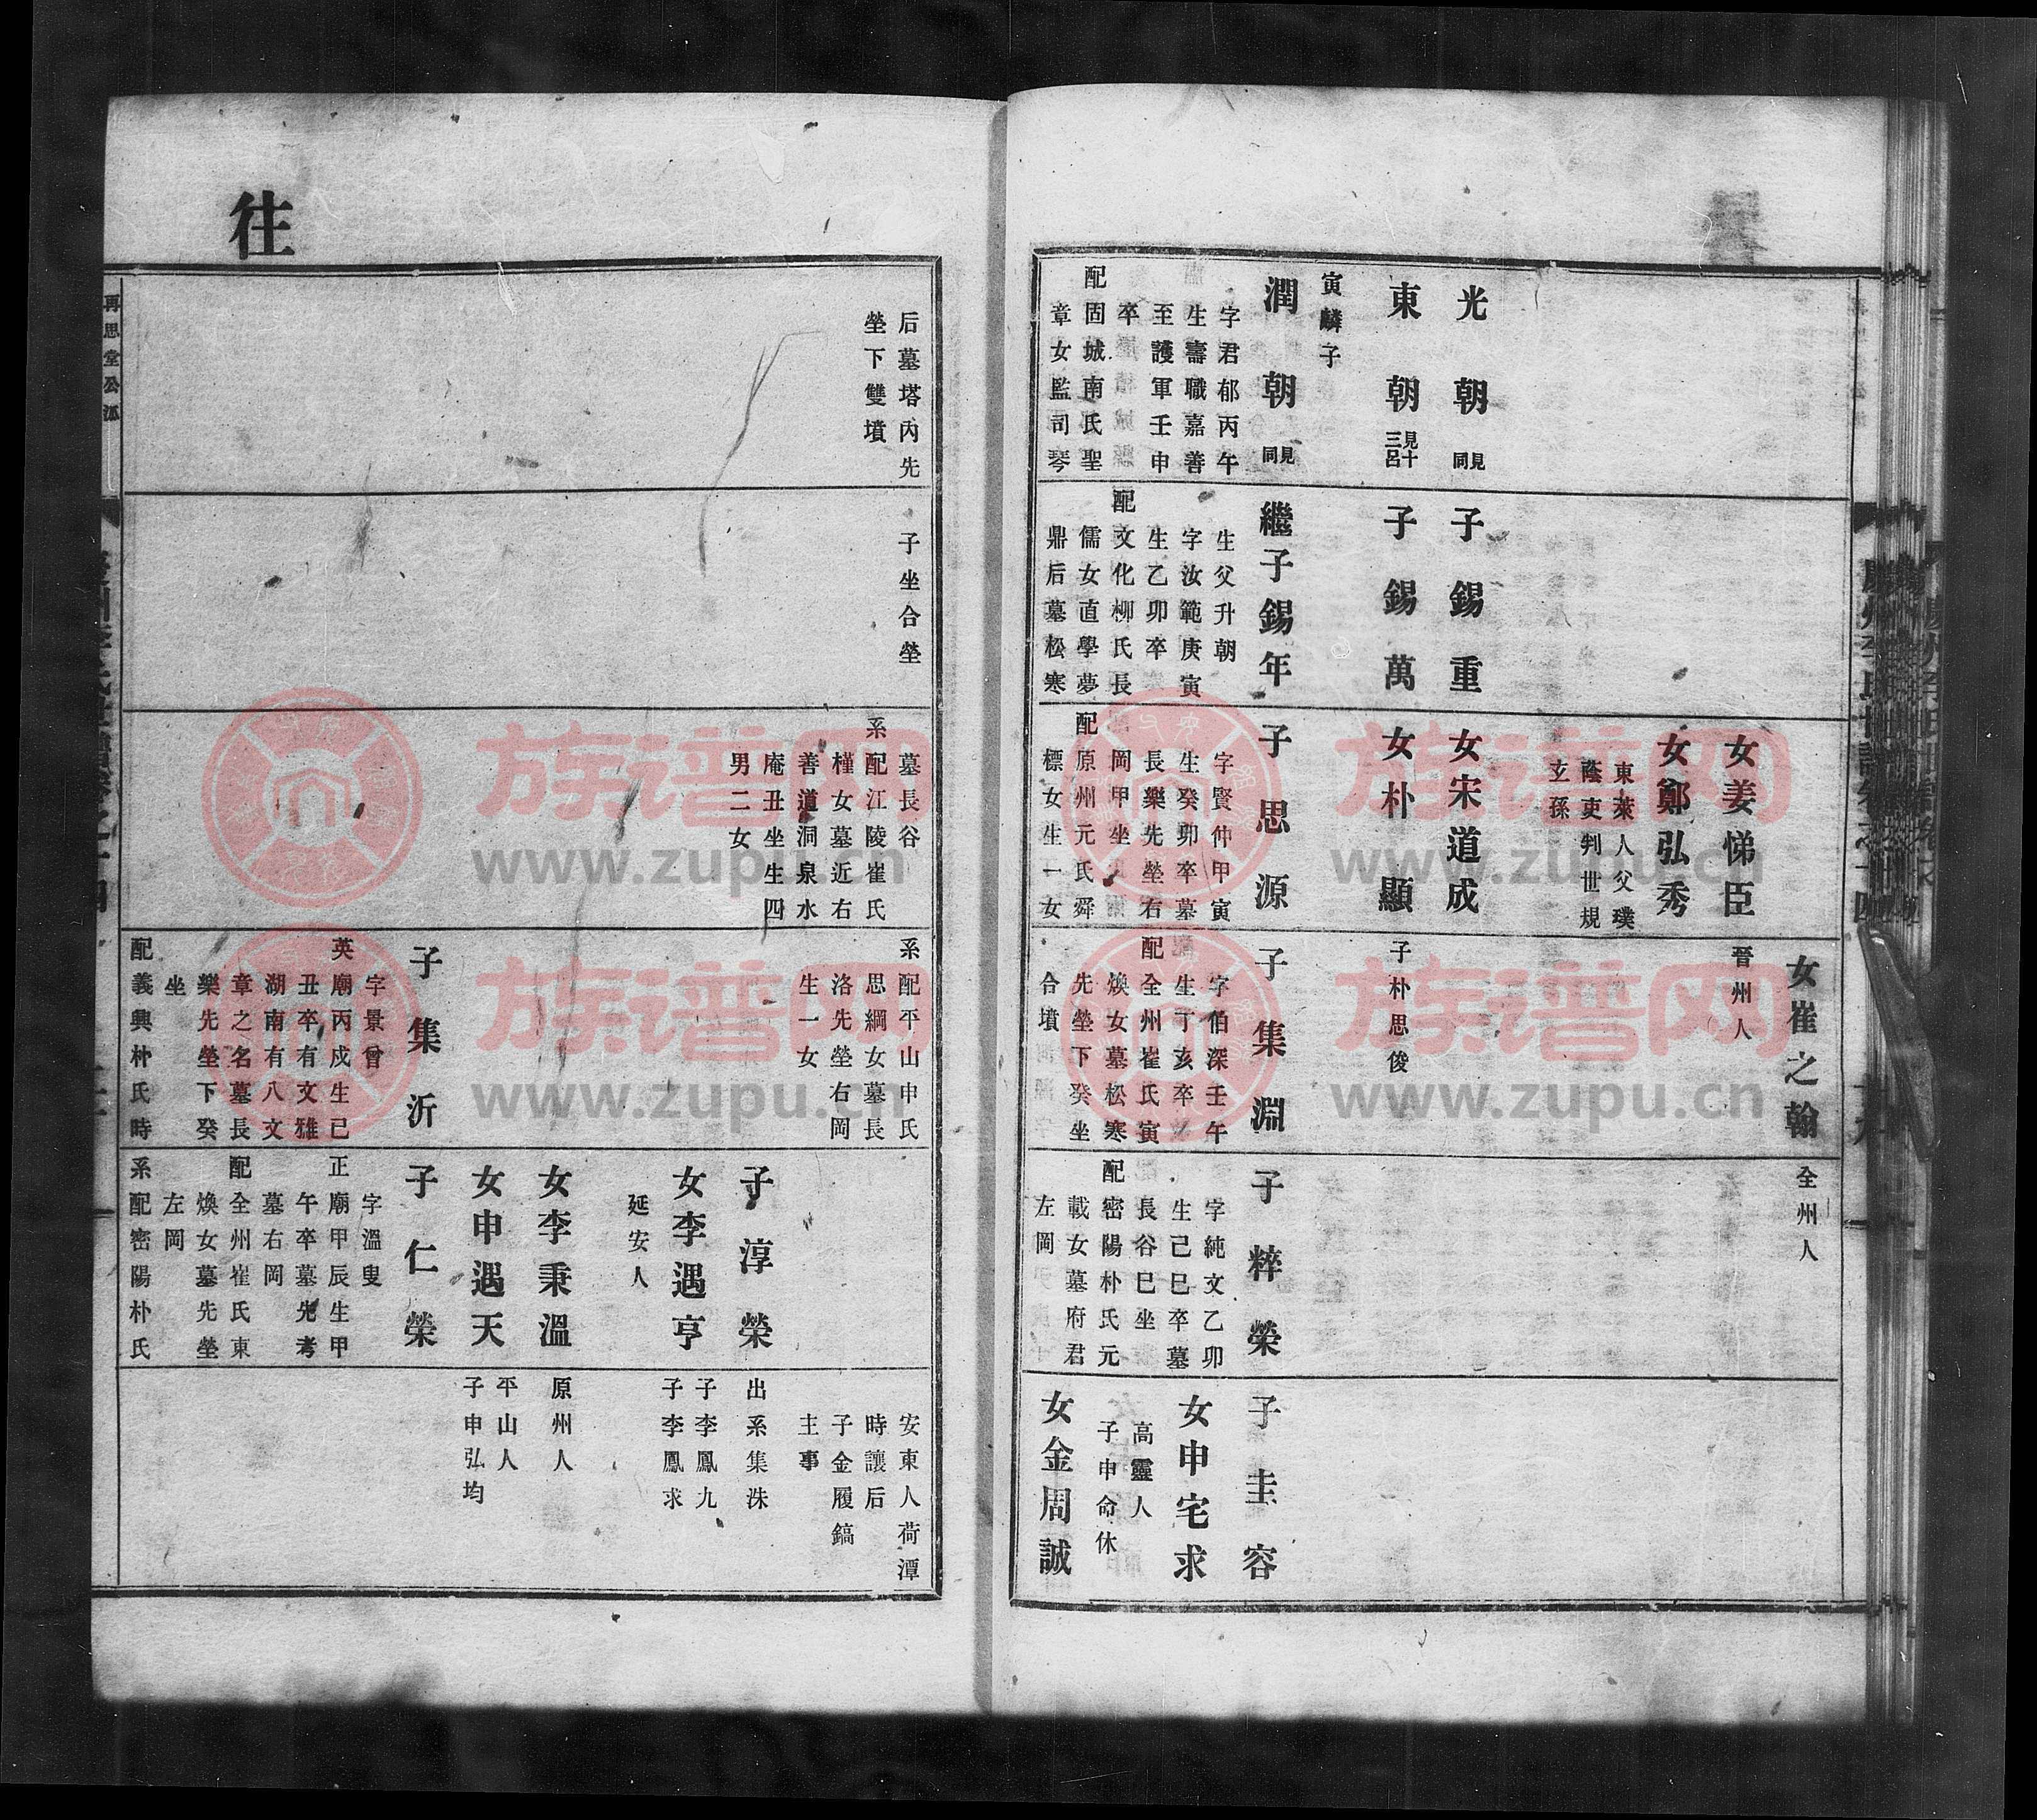 光朝 見同
東朝 見十三呂
寅麟子
潤朝 見同
字君郁丙午
生壽職嘉善
至護軍壬申
卒
配固城南氏聖
章女監司琴
子錫重
子錫萬
繼子錫年
生父升朝
字汝範庚寅
生乙卯卒
配文化柳氏長
儒女直學夢
鼎后墓松寒
女姜悌臣
女鄭弘秀
東萊人父璞
蔭吏判世規
玄孫
女宋道成
女朴顯
子思源
字賢仲甲寅
生癸卯卒墓
長樂先塋右
岡甲坐
配原州元氏舜
標女生一女
女崔之翰
晉州人
子朴思俊
子集淵
字伯深壬午
生丁亥卒
配全州崔氏寅
煥女墓松寒
先塋下癸坐
合墳
全州人
子粹榮
字純文乙卯
生己巳卒墓
長谷巳坐
配密陽朴氏元
載女墓府君
左岡
子圭容
女申宅求
高靈人
子申命休
女金周誠
往
再思堂公派
后墓塔內先
塋下雙墳
子坐合塋
墓長谷
系配江陵崔氏
槿女墓近右
善道洞泉水
庵丑坐生四
男二女
系配平山申氏
思綱女墓長
洛先塋右岡
生一女
子集沂
字景曾
英廟丙戌生己
丑卒有文雅
湖南有八文
章之名墓長
樂先塋下癸
坐
配義興朴氏時
子淳榮
女李遇亨
延安人
女李秉溫
女申遇天
子仁榮
字溫叟
正廟甲辰生甲
午卒墓先考
墓右岡
配全州崔氏東
煥女墓先塋
左岡
系配密陽朴氏
安東人荷潭
時讓后
子金履鎬
主事
出系集洙
子李鳳九
子李鳳求
原州人
平山人
子申弘均
族谱网
www.zupu.cn
族谱网
www.zupu.cn
族谱网
www.zupu.cn
族谱网
www.zupu.cn